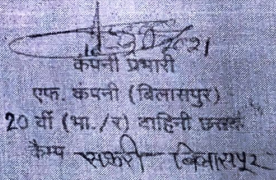 2021
कंपनी प्रभारी
एफ. कंपनी (बिलासपुर)
20 वीं (भा./र) वाहिनी छसबल
कैम्प सकरी बिलासपुर